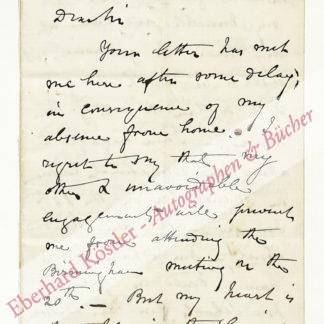 Dear Sir
Your letter has met
me here after some delay,
in consequence of my
absence from home. I
regret to say that my
other & unavoidable
engagements will prevent
me from attending the
Birmingham meeting on the
20th. — But my heart is
Eberhard Köstler - Autographen & Bücher